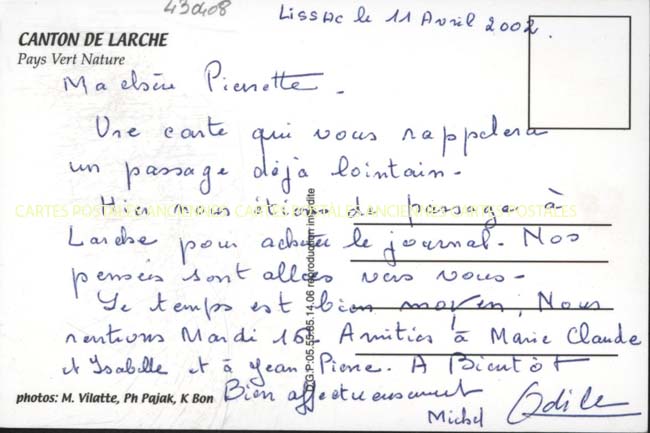 430408
Lissac le 11 Avril 2002.
CANTON DE LARCHE
Pays Vert Nature
Ma chère Pierrette.
Une carte qui vous rappelera
un passage déjà lointain.
Hier nous étions de passage à
CARTES POSTALES ANCIENNES CARTES POSTALES ANCIENNES CARTES POSTALES
Larche pour acheter le journal. Nos
pensées sont allées vers vous.
Le temps est bien moyen; Nous
rentrons Mardi 16. Amitiés à Marie Claude
et Isabelle et à Jean Pierre. A Bientôt
Bien affectueusement
Michel Odile
photos: M. Vilatte, Ph Pajak, K Bon
reproduction interdite